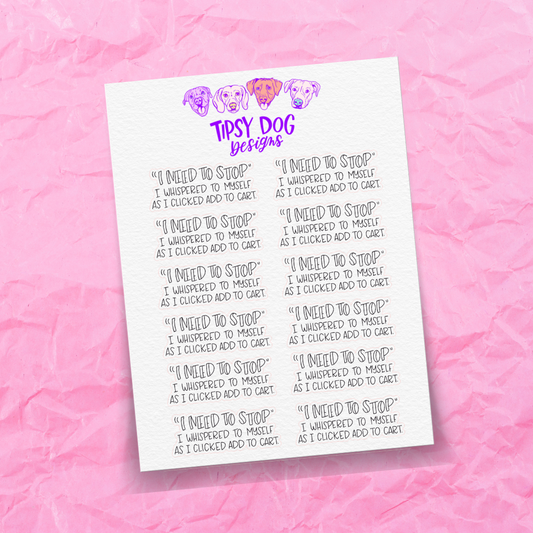 TIPSY DOG
Designs
"I NEED TO STOP"
I WHISPERED TO MYSELF
AS I CLICKED ADD TO CART
"I NEED TO STOP"
I WHISPERED TO MYSELF
AS I CLICKED ADD TO CART
"I NEED TO STOP"
I WHISPERED TO MYSELF
AS I CLICKED ADD TO CART
"I NEED TO STOP"
I WHISPERED TO MYSELF
AS I CLICKED ADD TO CART
"I NEED TO STOP"
I WHISPERED TO MYSELF
AS I CLICKED ADD TO CART
"I NEED TO STOP"
I WHISPERED TO MYSELF
AS I CLICKED ADD TO CART
"I NEED TO STOP"
I WHISPERED TO MYSELF
AS I CLICKED ADD TO CART
"I NEED TO STOP"
I WHISPERED TO MYSELF
AS I CLICKED ADD TO CART
"I NEED TO STOP"
I WHISPERED TO MYSELF
AS I CLICKED ADD TO CART
"I NEED TO STOP"
I WHISPERED TO MYSELF
AS I CLICKED ADD TO CART
"I NEED TO STOP"
I WHISPERED TO MYSELF
AS I CLICKED ADD TO CART
"I NEED TO STOP"
I WHISPERED TO MYSELF
AS I CLICKED ADD TO CART